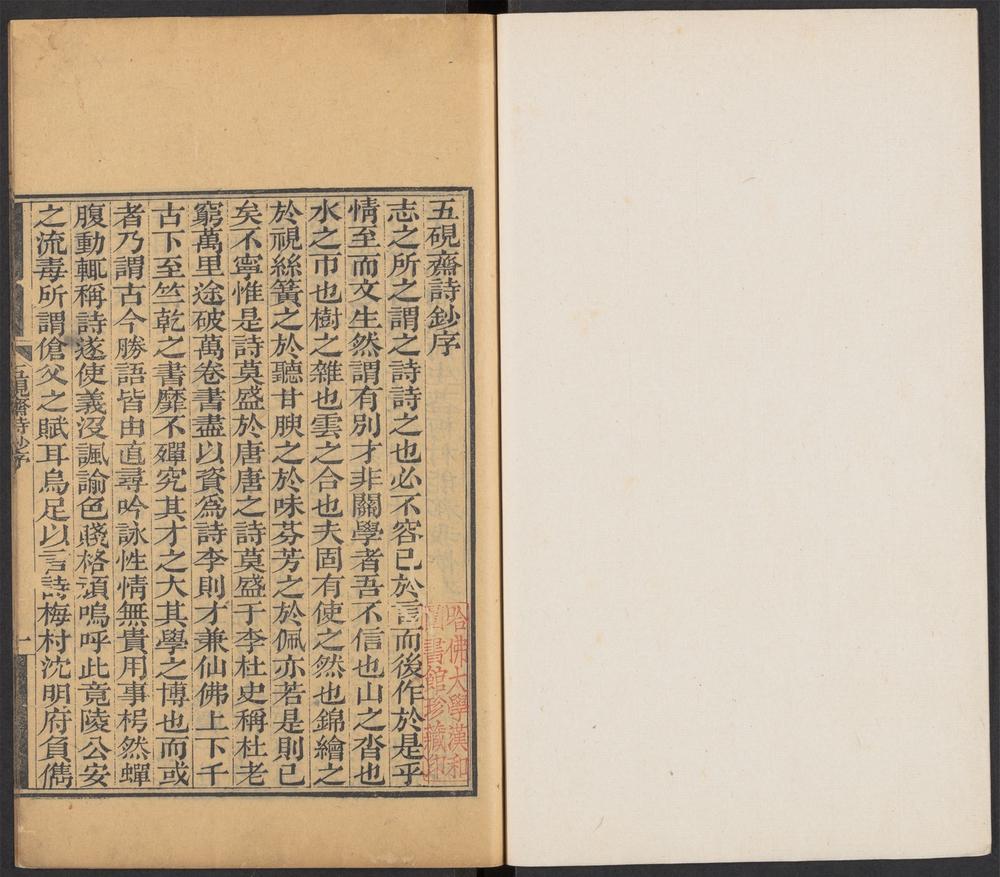 五硯齋詩鈔序
志之所之謂之詩詩之也必不容已於言而後作於是乎
情至而文生然謂有別才非關學者吾不信也山之沓也
水之帀也樹之雜也雲之合也夫固有使之然也錦繪之
於視絲簧之於聽甘腴之於味芬芳之於佩亦若是則已
矣不寧惟是詩莫盛於唐唐之詩莫盛于李杜史稱杜老
窮萬里途破萬卷書盡以資爲詩李則才兼仙佛上下千
古下至竺乾之書靡不殫究其才之大其學之博也而或
者乃謂古今勝語皆由直尋吟詠性情無貴用事枵然蟬
腹動輒稱詩遂使義沒諷諭色賤格湏嗚呼此竟陵公安
之流毒所謂傖父之賦耳烏足以言詩梅村沈明府負儁
五硯齋詩鈔序
一
哈佛大學漢和
圖書館珍藏印